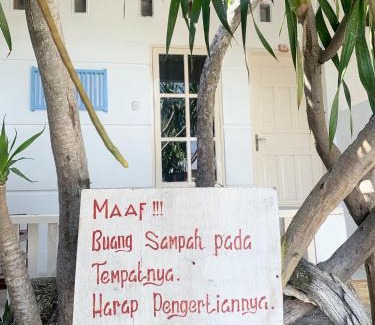 MAAF !!!
Buang Sampah pada
Tempatnya.
Harap Pengertiannya.